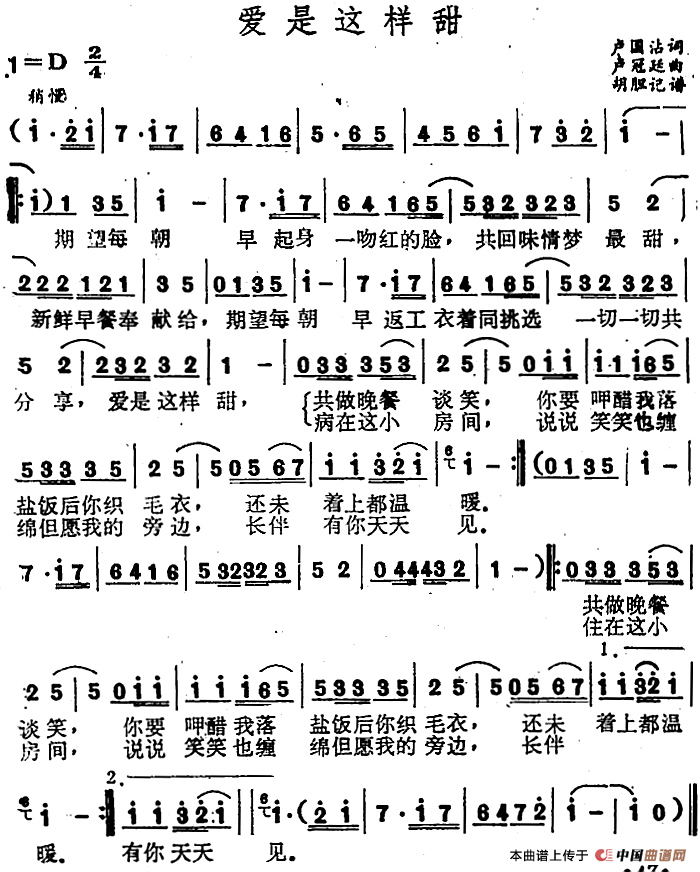 爱是这样甜
1=D 2/4
卢国沾词
卢冠廷曲
胡胆记谱
稍慢
(i·2i | 7·i7 | 6416 | 5·65 | 456i | 732 | i - |
i)1 35 | i - | 7·i7 | 64165 | 532323 | 5 2 |
期望每朝 早起身 一吻红的脸，共回味情梦 最甜，
222121 | 35 | 0135 | i - | 7·i7 | 64165 | 532323 |
新鲜早餐奉 献给，期望每朝 早返工衣着同挑选 一切一切共
5 2 | 23232 | 1 - | 033353 | 25 | 50ii | iii65 |
分享，爱是这样 甜，共做晚餐 谈笑，你要呷醋我落
病在这小 房间，说说笑笑也缠
53335 | 25 | 50567 | ii321 | 6 i - :| (0135 | i - |
盐饭后你织 毛衣，还未 着上都温 暖。
绵但愿我的 旁边，长伴 有你天天 见。
7·i7 | 6416 | 532323 | 52 | 044432 | 1 - ) :| 033353 |
共做晚餐
住在这小
1.
25 | 50ii | iii65 | 53335 | 25 | 50567 | ii32i |
谈笑，你要 呷醋我落 盐饭后你织 毛衣，还未 着上都温
房间，说说 笑笑也缠 绵但愿我的 旁边，长伴
2.
6 i - :| ii32i | 6 i·(2i | 7·i7 | 6472 | i - | i0) ‖
暖。有你天天 见。
本曲谱上传于 中国曲谱网
·47·